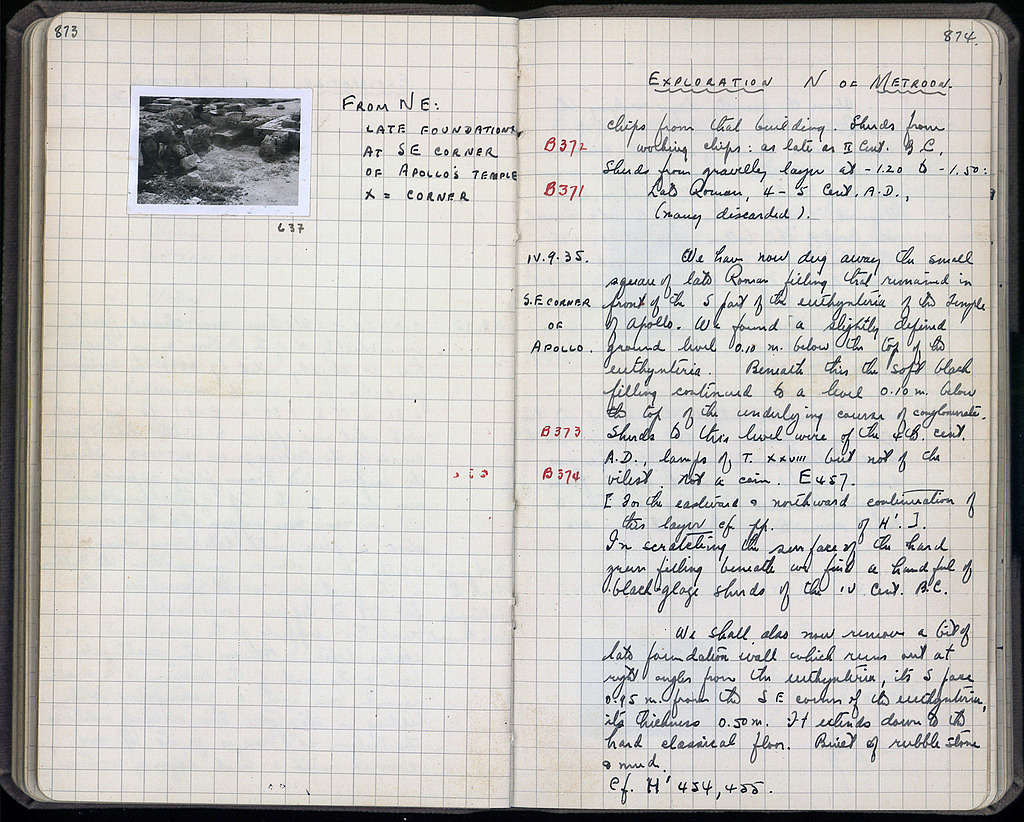 873
FROM NE:
LATE FOUNDATIONS
AT SE CORNER
OF APOLLO'S TEMPLE
X = CORNER
637
874.
EXPLORATION N OF METROON.
chips from that building. Sherds from
B372 working chips: as late as II Cent. B.C.
Sherds from gravelly layer at -1.20 to -1.50:
B371 Late Roman, 4-5 Cent. A.D.,
(many discarded).
IV.9.35. We have now dug away the small
square of late Roman filling that remained in
S.E CORNER front of the S part of the euthynteria of the Temple
OF of Apollo. We found a slightly defined
APOLLO. ground level 0.10 m. below the top of the
euthynteria. Beneath this the soft black
filling continued to a level 0.10 m. below
the top of the underlying course of conglomerate.
B373 Sherds to this level were of the 4th. cent.
A.D., lamps of T. XXVIII but not of the
B374 vilest. not a coin. E457.
[ For the eastward & northward continuation of
this layer cf. pp. of H'. ].
In scratching the surface of the hard
green filling beneath we find a handful of
black-glaze sherds of the IV Cent. B.C.
We shall also now remove a bit of
late foundation wall which runs out at
right angles from the euthynteria, its S face
0.95 m. from the SE corner of the euthynteria,
its thickness 0.50 m. It extends down to the
hard classical floor. Built of rubble stone
& mud.
Cf. H' 454, 455.